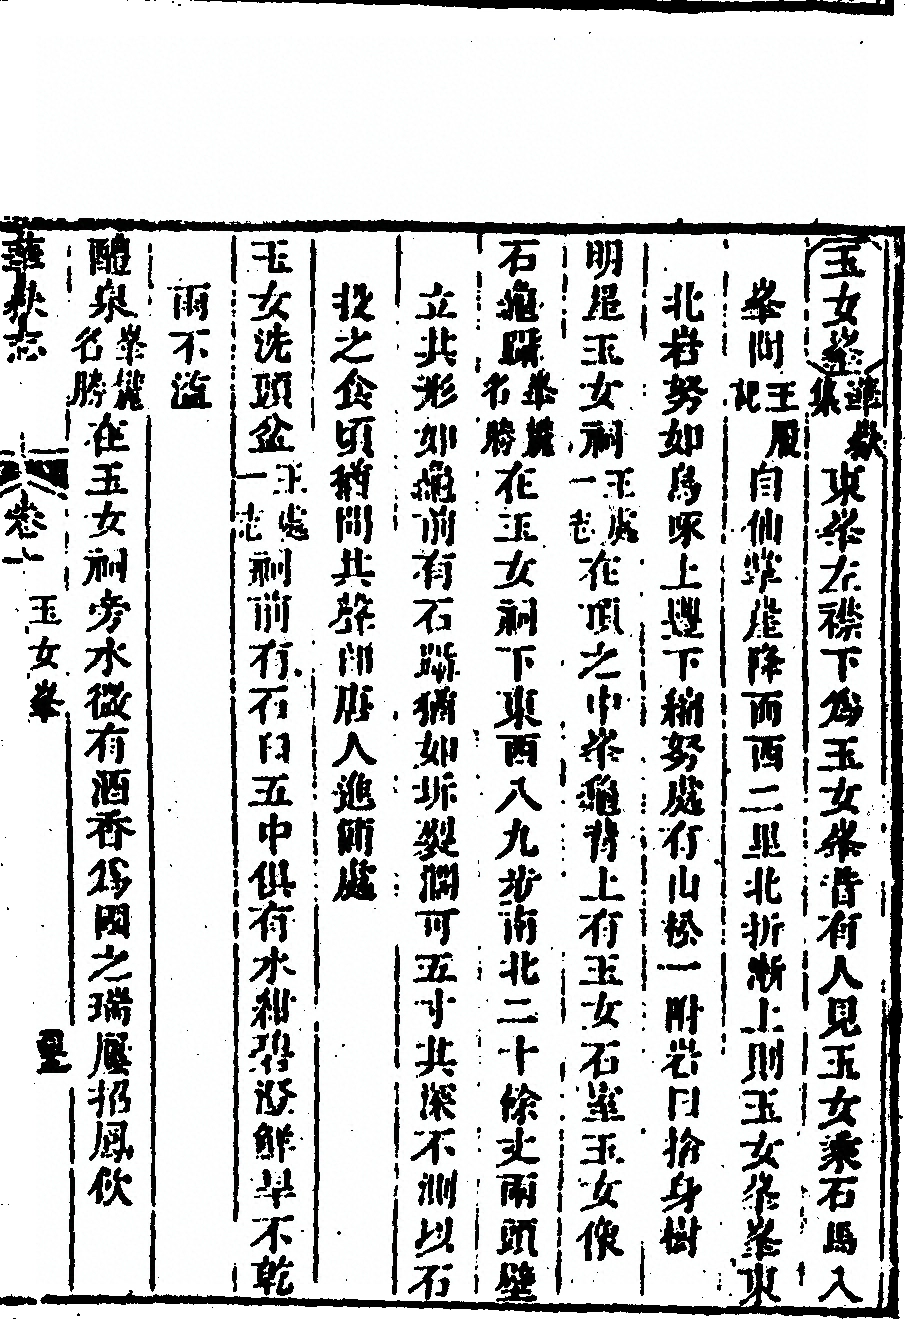 玉女峯華嶽集東峯左襟下為玉女峯昔有人見玉女乘石馬入
峯間王履記自仙掌崖降而西二里北折漸上則玉女峯峯東
北岩努如鳥啄上豐下縮努處有山松一附岩曰捨身樹
明星玉女祠王處一志在頂之中峯龜背上有玉女石室玉女像
石龜躡峯巒名勝在玉女祠下東西八九步南北二十餘丈兩頭壁
立其形如龜前有石躡猶如坼裂濶可五寸其深不測以石
投之食頃猶聞其聲即唐人進簡處
玉女洗頭盆王處一志祠前有石臼五中俱有水紺碧澄鮮旱不乾
雨不溢
醴泉峯巒名勝在玉女祠旁水微有酒香為國之瑞屢招鳳飲
華嶽志
卷一
玉女峯